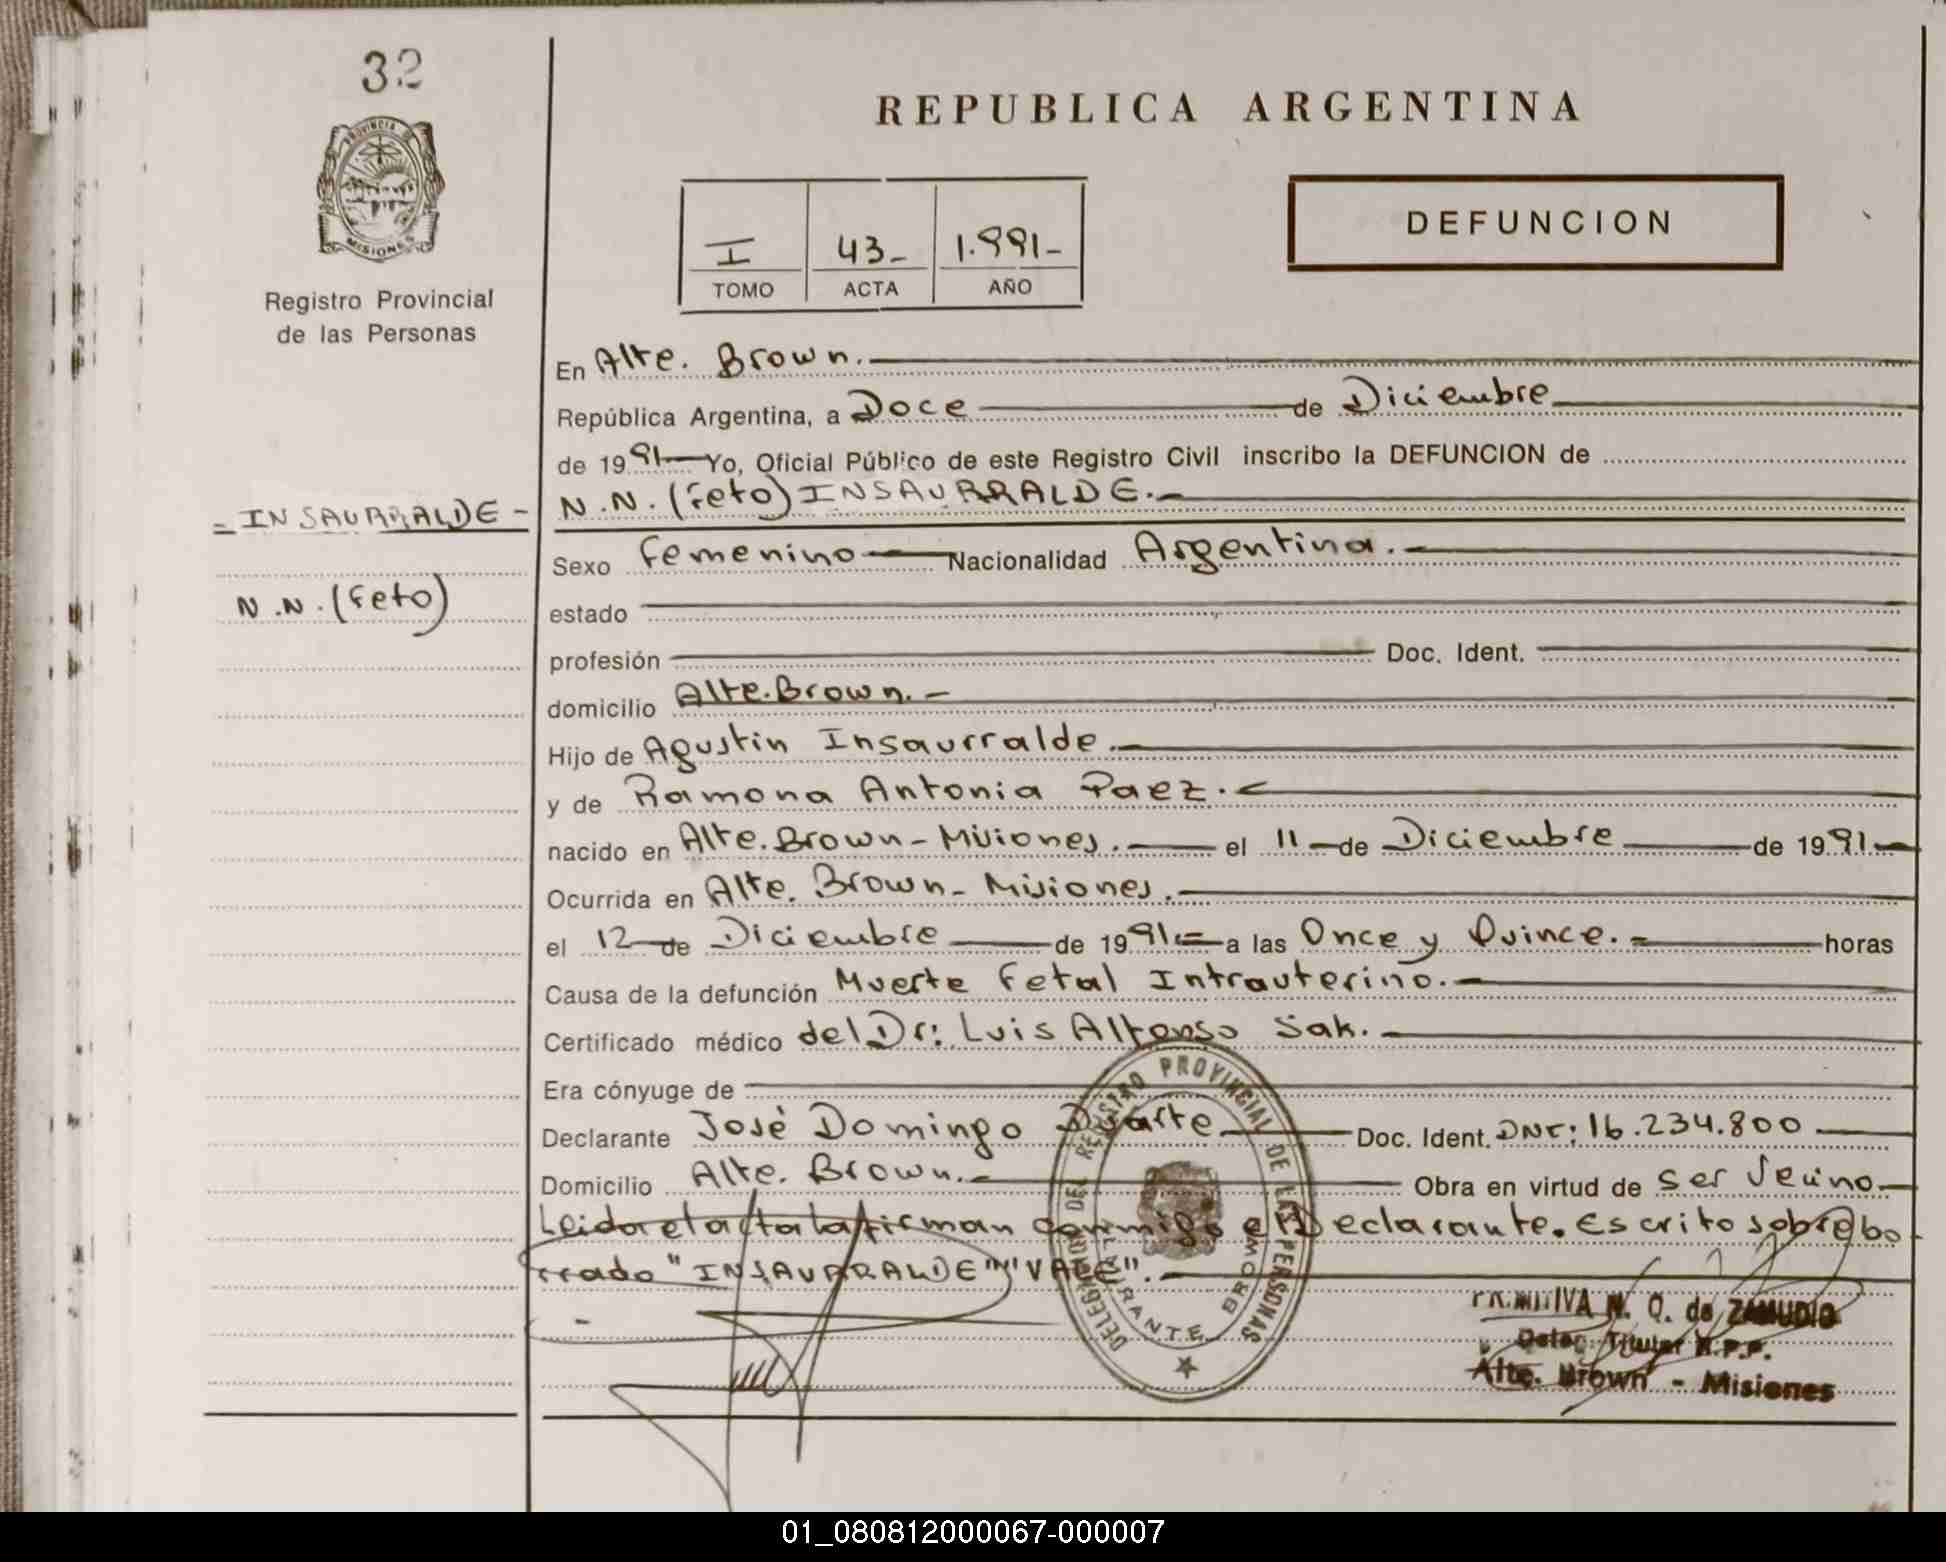 32
PROVINCIA DE
MISIONES
Registro Provincial
de las Personas
REPUBLICA ARGENTINA
I 43- 1.991-
TOMO ACTA AÑO
DEFUNCION
En Alte. Brown.
República Argentina, a Doce de Diciembre
de 1991 Yo, Oficial Público de este Registro Civil inscribo la DEFUNCION de
- INSAURRALDE -
N.N. (Feto) INSAURRALDE.-
Sexo Femenino Nacionalidad Argentina.-
N.N. (Feto)
estado
profesión Doc. Ident.
domicilio Alte. Brown.-
Hijo de Agustin Insaurralde.
y de Ramona Antonia Paez.
nacido en Alte. Brown - Misiones. el 11 de Diciembre de 1991
Ocurrida en Alte. Brown - Misiones.
el 12 de Diciembre de 1991 a las Once y Quince. horas
Causa de la defunción Muerte Fetal Intrauterino.
Certificado médico del Dr: Luis Alfonso Sak.
Era cónyuge de
Declarante José Domingo Duarte Doc. Ident. DNI: 16.234.800
Domicilio Alte. Brown. Obra en virtud de ser Vecino
Leida el acta la firman conmigo el Declarante. Escrito sobre bo
rrado "INSAURRALDE" "VALE".
DELEGACION DEL REGISTRO PROVINCIAL DE LAS PERSONAS
ALMIRANTE BROWN
PRIMITIVA N. Q. de ZAMUDIO
Deleg. Titular R.P.P.
Alte. Brown - Misiones
01_080812000067-000007